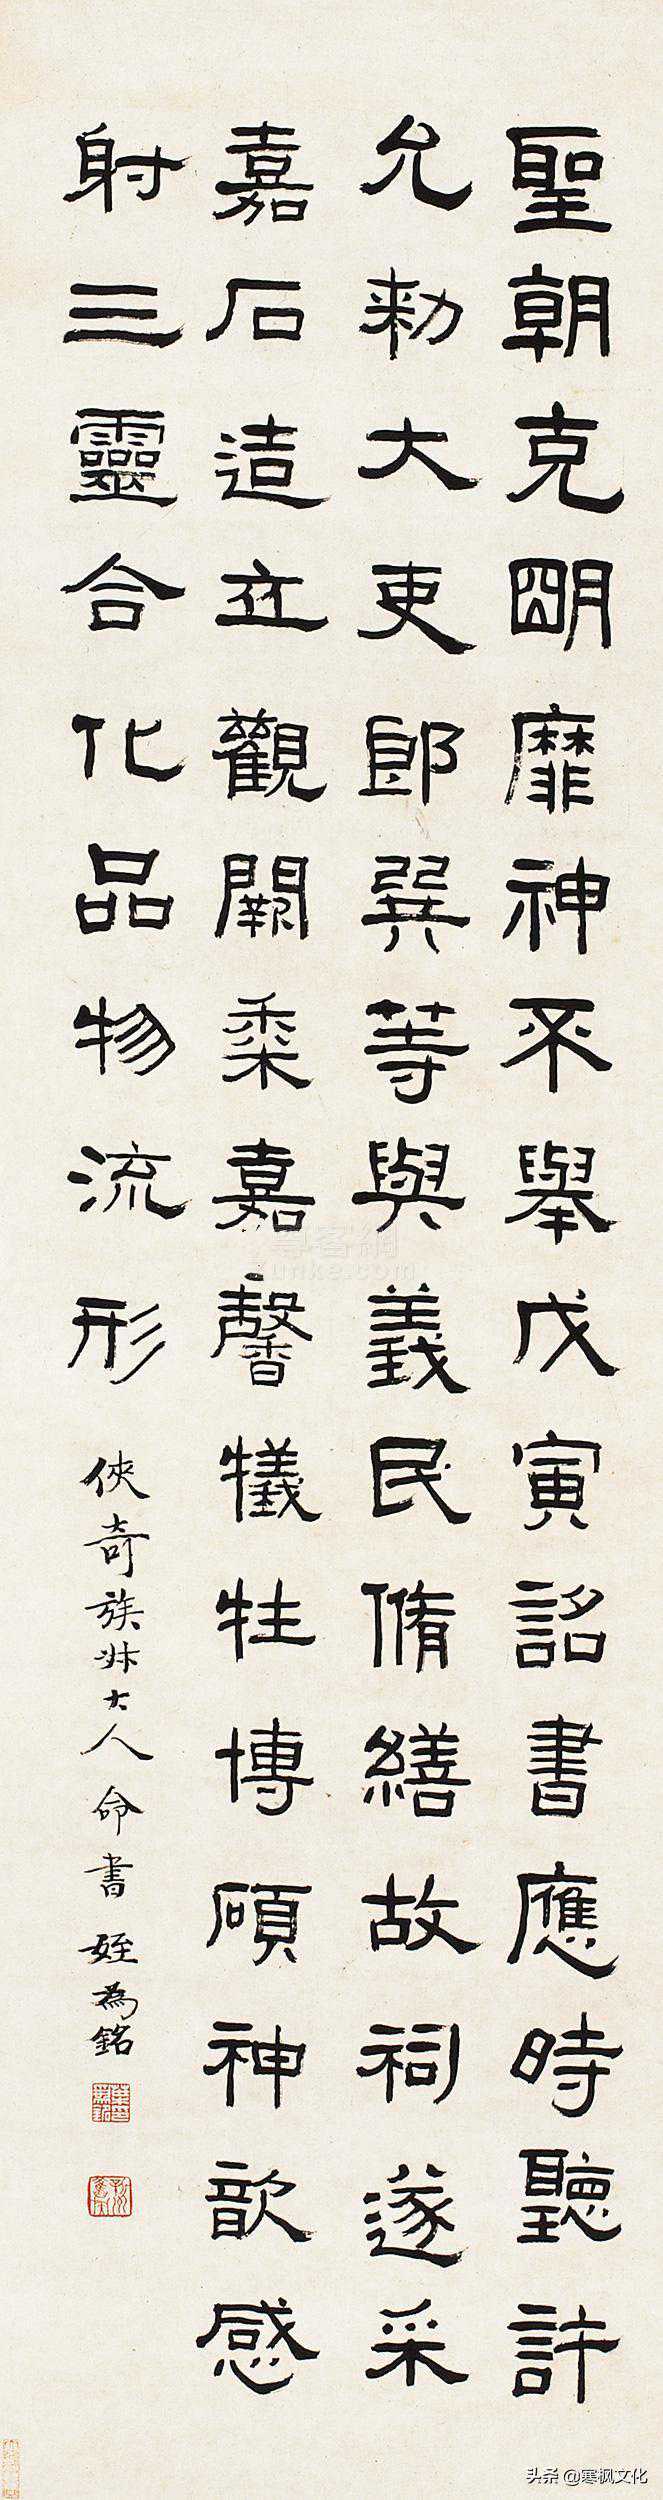 聖朝克明靡神不舉戊寅詔書應時聽許
允勑大吏郎巽等與義民脩繕故祠遂采
嘉石造立觀闕黍嘉馨犧牲博碩神歆感
射三靈合化品物流形
俠奇族叔大人命書 姪為銘
粵客網
yunke.com
头条 @寒枫文化